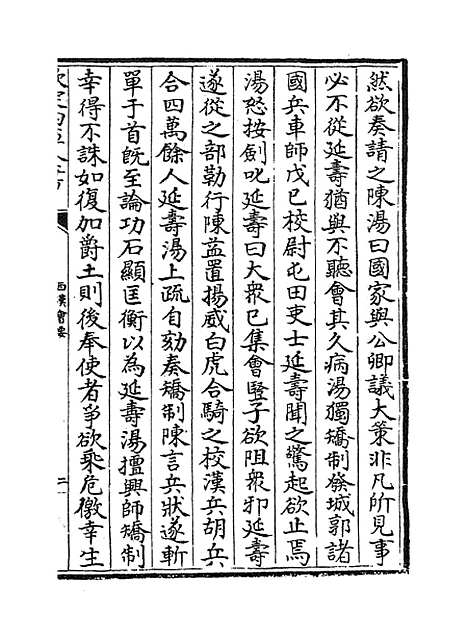 然欲奏請之陳湯曰國家與公卿議大策非凡所見事
必不從延壽猶與不聽會其久病湯獨矯制發城郭諸
國兵車師戊已校尉屯田吏士延壽聞之驚起欲止焉
湯怒按劍叱延壽曰大衆已集會豎子欲阻衆邪延壽
遂從之部勒行陳益置揚威白虎合騎之校漢兵胡兵
合四萬餘人延壽湯上疏自劾奏矯制陳言兵狀遂斬
單于首既至論功石顯匡衡以為延壽湯擅興師矯制
幸得不誅如復加爵土則後奉使者爭欲乘危徼幸生
西漢會要